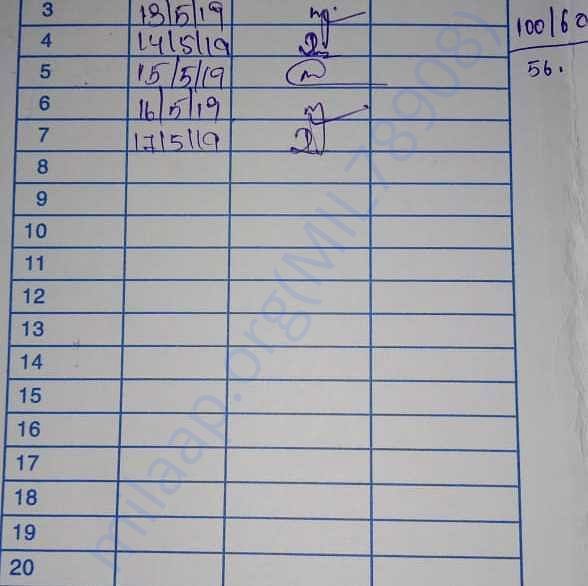 3 13/5/19 100/60
4 14/5/19
5 15/5/19 56.
6 16/5/19
7 17/5/19
8
9
10
11
12
13
14
15
16
17
18
19
20
milaap.org(MIL789908)